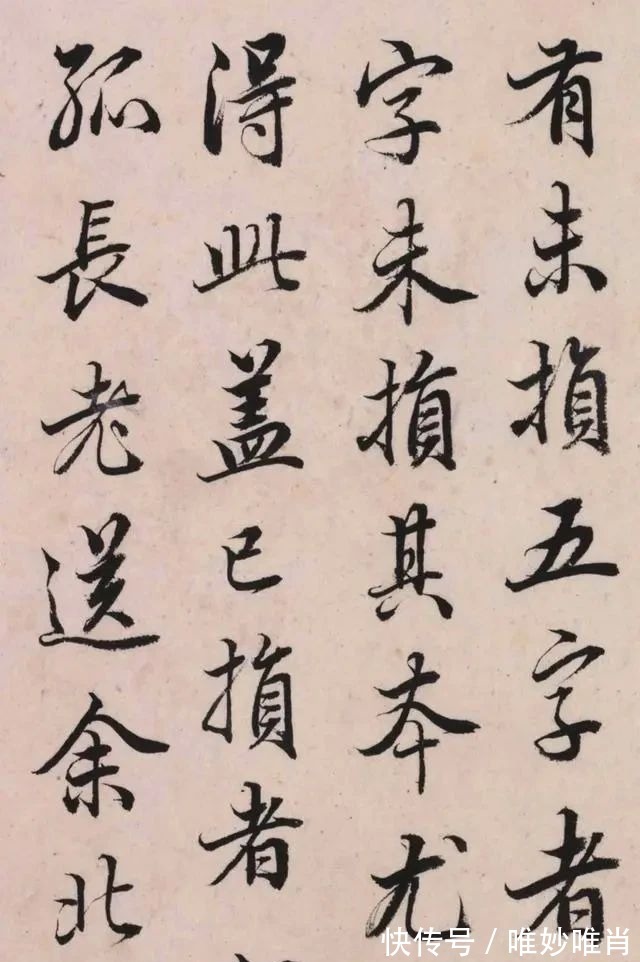 有未損五字者
字未損其本尤
得此蓋已損者
孤長老送余北
快传号/唯妙唯肖